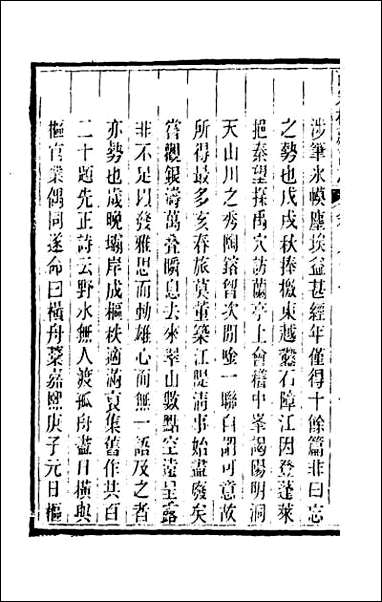 涉筆水幙塵埃益甚經年僅得十餘篇非曰忘
之勢也戊戌秋捧檄東越鑿石障江因登蓬萊
挹秦望探禹穴訪蘭亭上會稽中峯謁陽明洞
天山川之秀陶鎔胷次閒唫一聯自謂可意故
所得最多亥春旅莫董築江隄淸事始盡廢矣
嘗觀銀濤萬叠瞬息去來翠山數點空遠呈露
非不足以發雅思而動雄心而無一語及之者
亦勢也歲晚壩岸成樞秩適滿裒集舊作共百
二十題先正詩云野水無人渡孤舟盡日橫與
樞官業偶同遂命曰橫舟藁嘉熙庚子元日樞